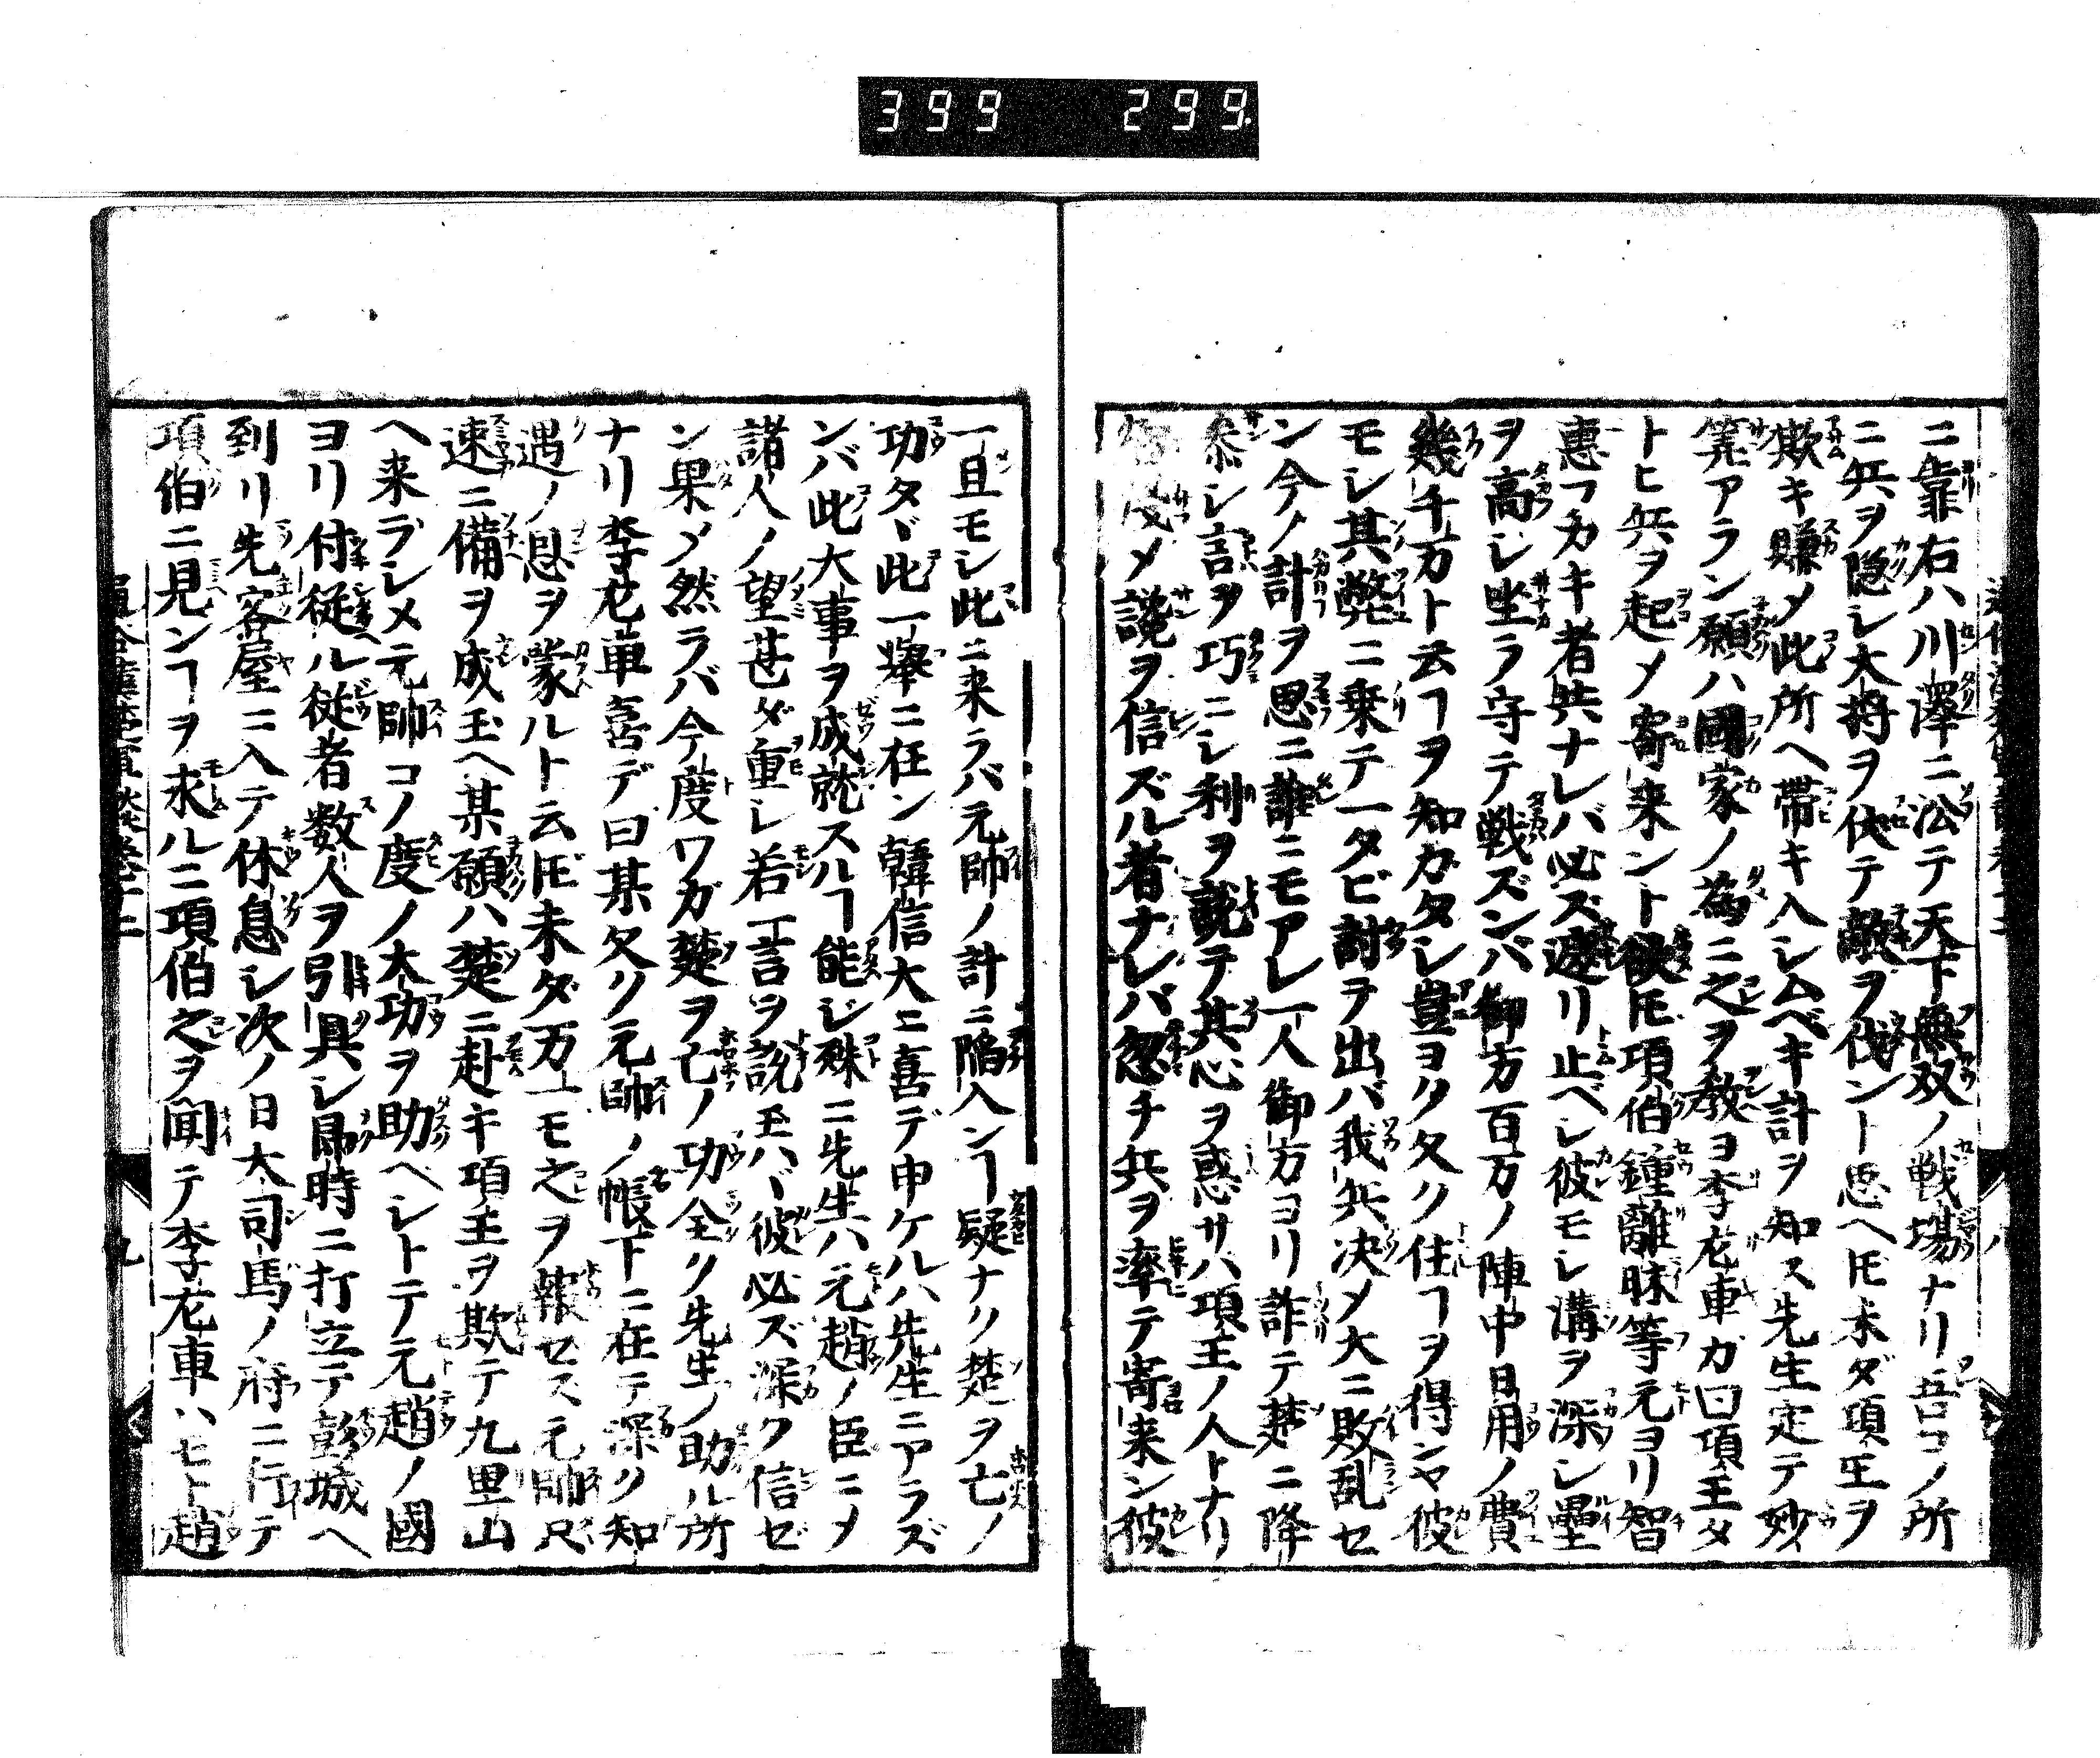 399 299.
ニ靠右ハ川澤ニ㳂テ天下無双ノ戦場ナリ吾コノ所
ニ兵ヲ隠シ大将ヲ伏テ敵ヲ伐ント思ヘ𪜈未ダ項王ヲ
欺キ賺メ此所ヘ帯キ入シムベキ計ヲ知ス先生定テ妙
筭アラン願ハ國家ノ為ニ之ヲ教ヨ李左車ガ曰項王タ
トヒ兵ヲ起メ寄来ント欲𪜈項伯鍾離昧等元ヨリ智
惠フカキ者共ナレバ必ズ遮リ止ベシ彼モシ溝ヲ深シ壘
ヲ高シ坐ラ守テ戦ズンバ御方百万ノ陣中日用ノ費
幾千万ト云ヿヲ知ガタシ豈ヨク久ク住ヿヲ得ンヤ彼
モシ其弊ニ乗テ一タビ討テ出バ我兵决メ大ニ敗乱セ
ン今ノ計ヲ思ニ誰ニモアレ一人御方ヨリ詐テ楚ニ降
参シ言ヲ巧ニシ利ヲ説テ其心ヲ惑サハ項王ノ人トナリ
メ讒ヲ信ズル者ナレバ忽チ兵ヲ率テ寄来ン彼
一旦モシ此ニ来ラバ元帥ノ計ニ陥入ンヿ疑ナリ楚ヲ亡ノ
功タヾ此一擧ニ在ン韓信大ニ喜デ申ケルハ先生ニアラズ
ンバ此大事ヲ成就スルヿ能ジ殊ニ先生ハ元趙ノ臣ニメ
諸人ノ望甚ダ重シ若一言ヲ説玉ハヾ彼必ズ深ク信ゼ
ン果メ然ラバ今度ワガ楚ヲ亡ノ功全ク先生ノ助ル所
ナリ李左車喜デ曰某久ク元帥ノ帳下ニ在テ深ク知
遇ノ恩ヲ蒙ルト云𪜈未ダ万一モ之ヲ報セス元帥只
速ニ備ヲ成玉ヘ某願ハ楚ニ赴キ項王ヲ欺テ九里山
ヘ来ラシメ元帥コノ度ノ大功ヲ助ヘシトテ元趙ノ國
ヨリ付従ル従者数人ヲ引具シ即時ニ打立テ彭城ヘ
到リ先客屋ニ入テ休息シ次ノ日大司馬ノ府ニ行テ
項伯ニ見ンヿヲ求ルニ項伯之ヲ聞テ李左車ハモト趙
九